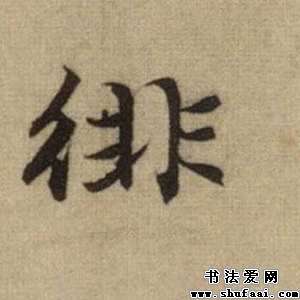 徘
书法爱网
www.shufaai.com